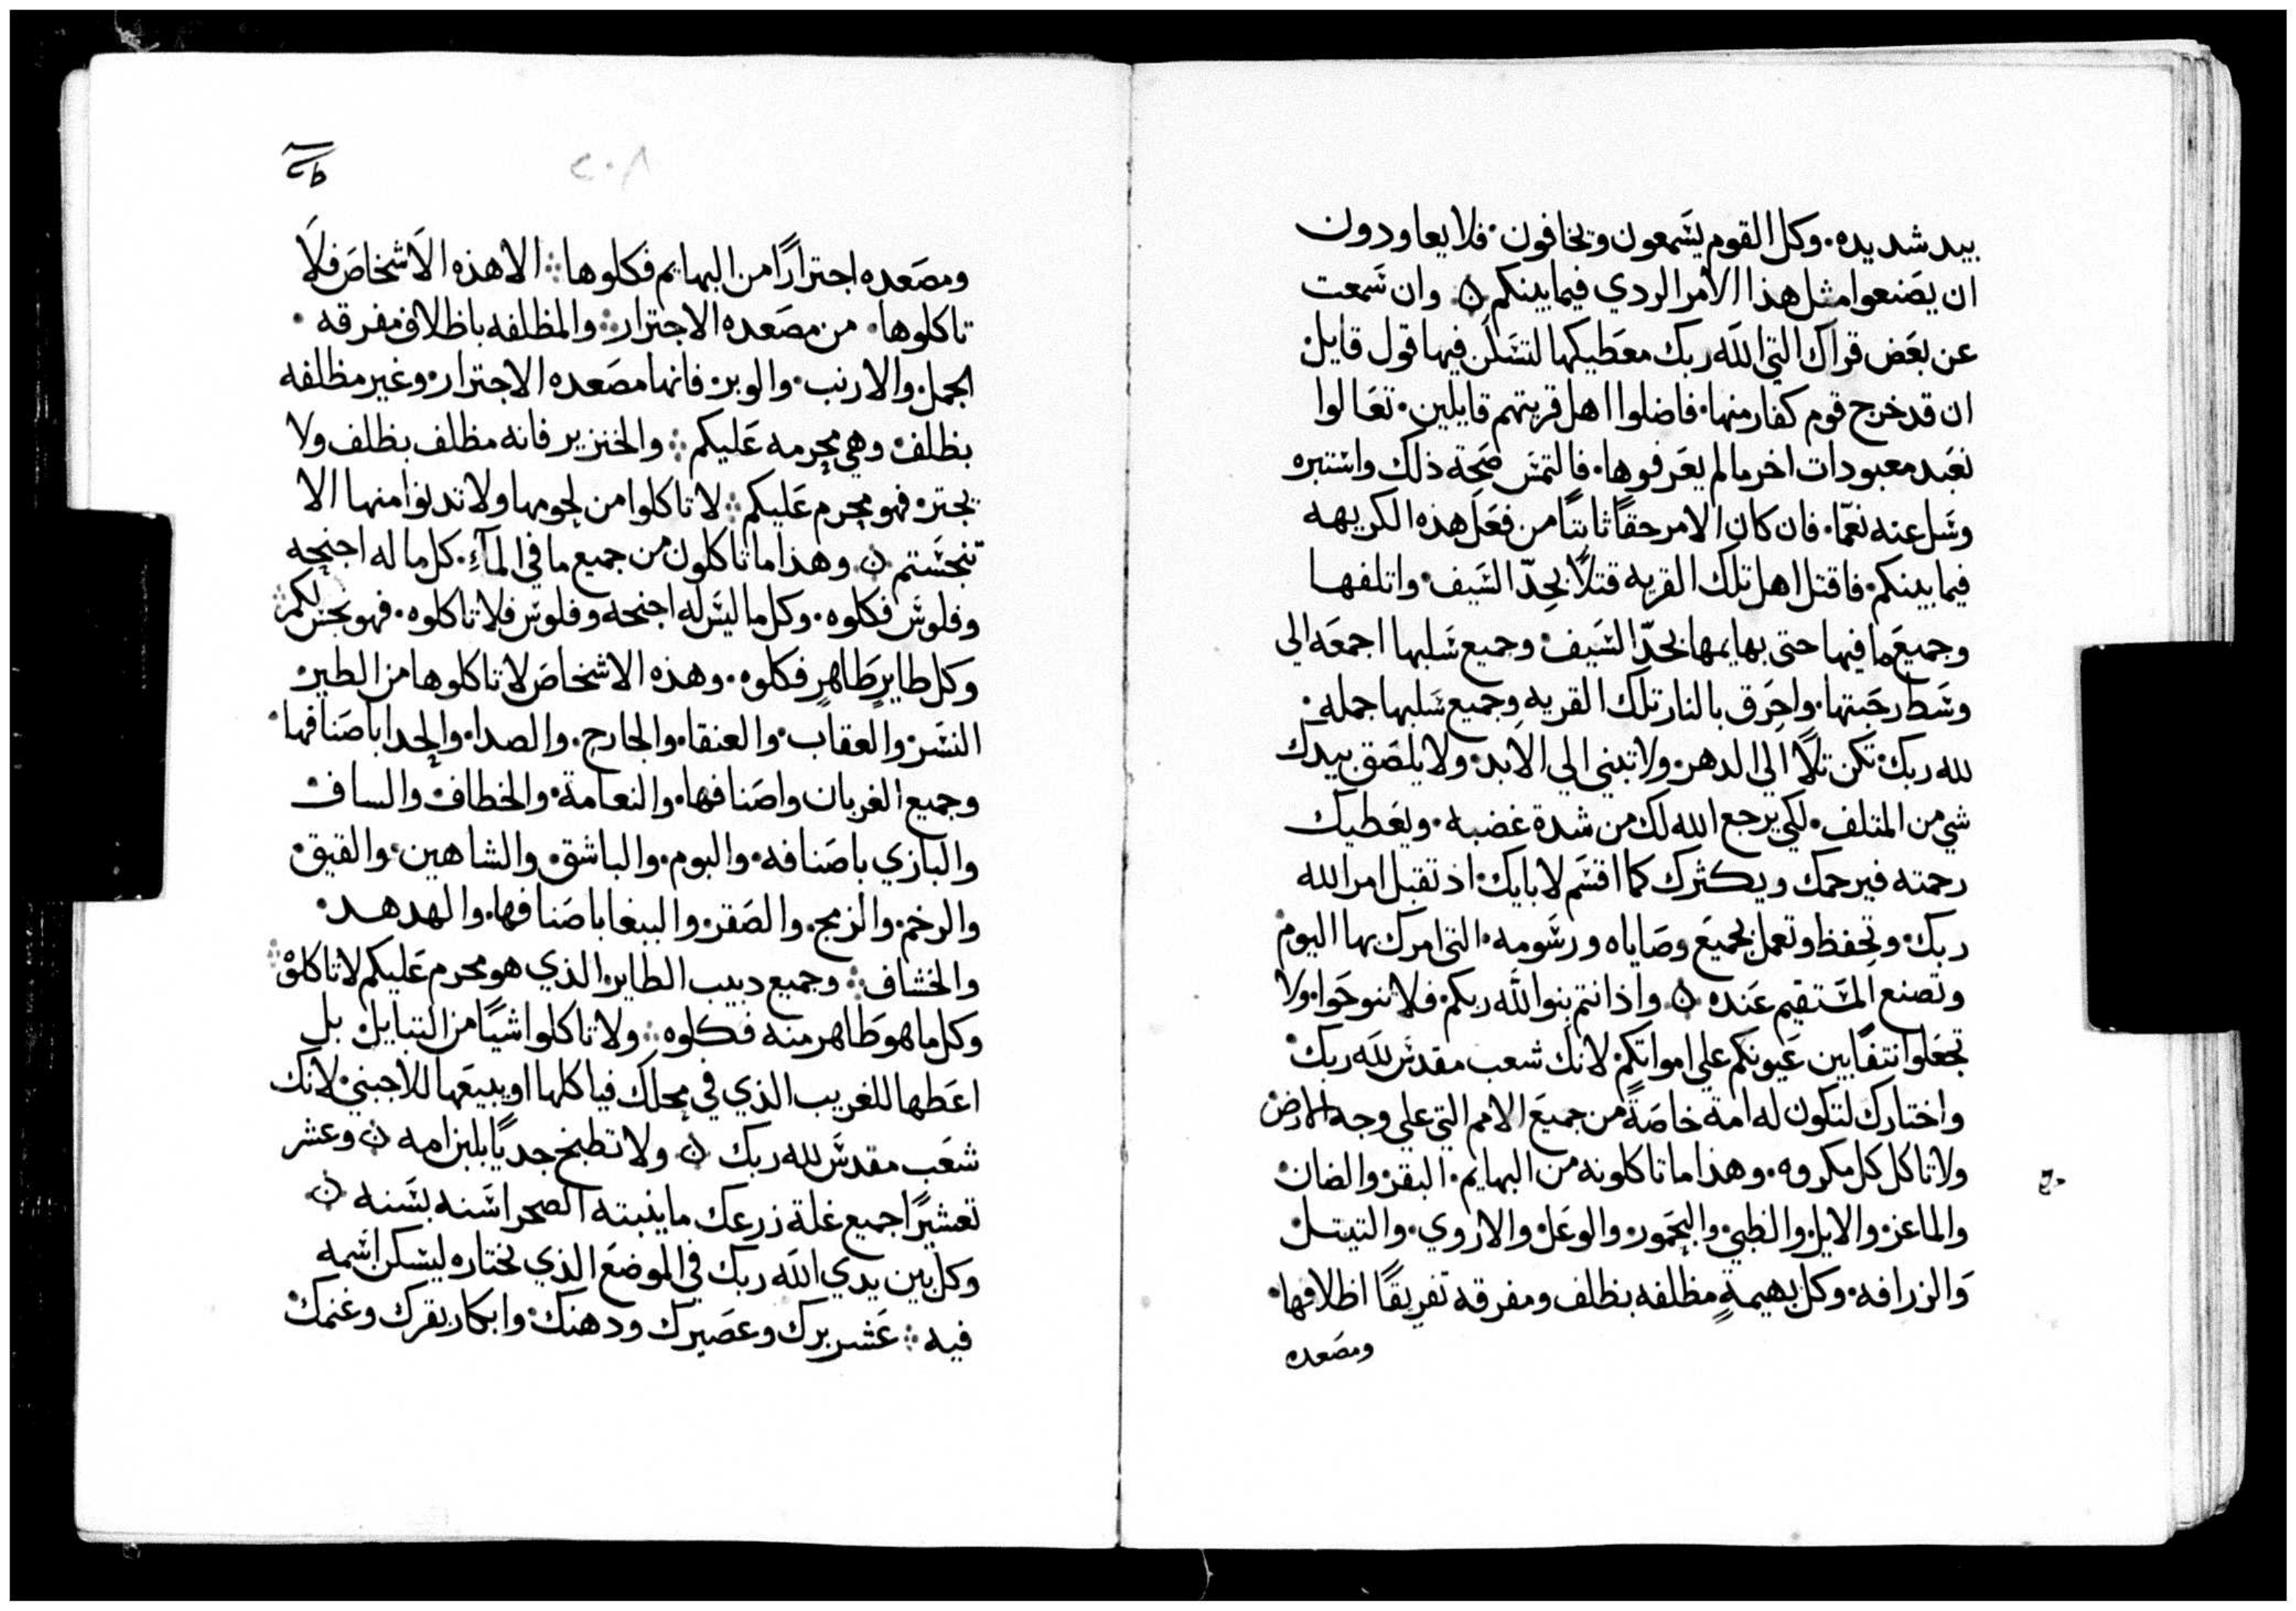 بيد شديده. وكل القوم يسمعون ويخافون. فلا يعاودون
ان يصنعوا مثل هذا الامر الردي فيما بينكم ۞ وان سمعت
عن بعض قراك التي الله ربك معطيكها لتسكن فيها قول قايل
ان قد خرج قوم كفار منها. فاضلوا اهل قريتهم قايلين. تعالوا
نعبد معبودات اخر ما لم يعرفوها. فالتمس صحة ذلك واستبره
وسل عنه نعمّا. فان كان الامر حقاً ثابتاً من فعل هذه الكريهه
فيما بينكم. فاقتل اهل تلك القريه قتلاً بحدّ السيف. واتلفها
وجميع ما فيها حتى بهايمها بحدّ السيف. وجميع سلبها اجمعه الي
وسط رحبتها. واحرق بالنار تلك القريه وجميع سلبها جمله.
لله ربك. تكن تلاً الي الدهر. ولا تبني الي الابد. ولا يلصق بيدك
شي من المتلف. لكي يرجع الله لك من شدة غضبه. ويعطيك
رحمته فيرحمك ويكثرك كما اقسم لابايك. اذ تقبل امر الله
ربك. وتحفظ وتعمل بجميع وصاياه ورسومه. التي امرك بها اليوم
وتصنع المستقيم عنده ۞ واذ انتم بنوا الله ربكم. فلا تنوحوا. ولا
تجعلوا نتفاً بين عيونكم علي امواتكم. لانك شعب مقدس لله ربك.
واختارك لتكون له امة خاصةً من جميع الامم التي علي وجه الارض
ولا تاكل كل مكروه. وهذا ما تاكلونه من البهايم. البقر. والضان.
والماعز. والايل. والظبي. واليحمور. والوعل. والاروي. والتيتل.
والزرافه. وكل بهيمةٍ مظلفه بظلف ومفرقه تفريقاً اظلافها.
ومصعده
٢٠٨
ومصعده اجتراراً من البهايم فكلوها ⁘ الا هذه الاشخاص فلا
تاكلوها. من مصعده الاجترار ⁘ والمظلفه باظلاف مفرقه.
الجمل. والارنب. والوبر. فانها مصعده الاجترار. وغير مظلفه
بظلف. وهي محرمه عليكم ⁘ والخنزير فانه مظلف بظلف ولا
يجتر. فهو محرم عليكم ⁘ لا تاكلوا من لحومها ولا تدنوا منها الا
تنجستم ۞ وهذا ما تاكلون من جميع ما في المآءِ. كل ما له اجنحه
وفلوس فكلوه. وكل ما ليس له اجنحه وفلوس فلا تاكلوه. فهو نجس لكم ⁘
وكل طايرٍ طاهرٍ فكلوه. وهذه الاشخاص لا تاكلوها من الطير.
النسر. والعقاب. والعنقا. والجارح. والصدا. والحدا باصنافها.
وجميع الغربان واصنافها. والنعامة. والخطاف. والساف.
والبازي باصنافه. والبوم. والباشق. والشاهين. والقيق.
والرخم. والزمج. والصقر. والببغا باصنافها. والهدهد.
والخشاف ⁘ وجميع دبيب الطاير الذي هو محرم عليكم لا تاكلوه ⁘
وكل ما هو طاهر منه فكلوه ⁘ ولا تاكلوا شيًا من النبايل. بل
اعطها للغريب الذي في محلك فياكلها او يبيعها للاجنبي. لانك
شعب مقدس لله ربك ۞ ولا تطبخ جدياً بلبن امه ۞ وعشر
تعشيراً جميع غلة زرعك ما ينبته الصحرا سنه بسنه ۞
وكل بين يدي الله ربك في الموضع الذي يختاره ليسكن اسمه
فيه ⁘ عشر برك وعصيرك ودهنك. وابكار بقرك وغنمك.